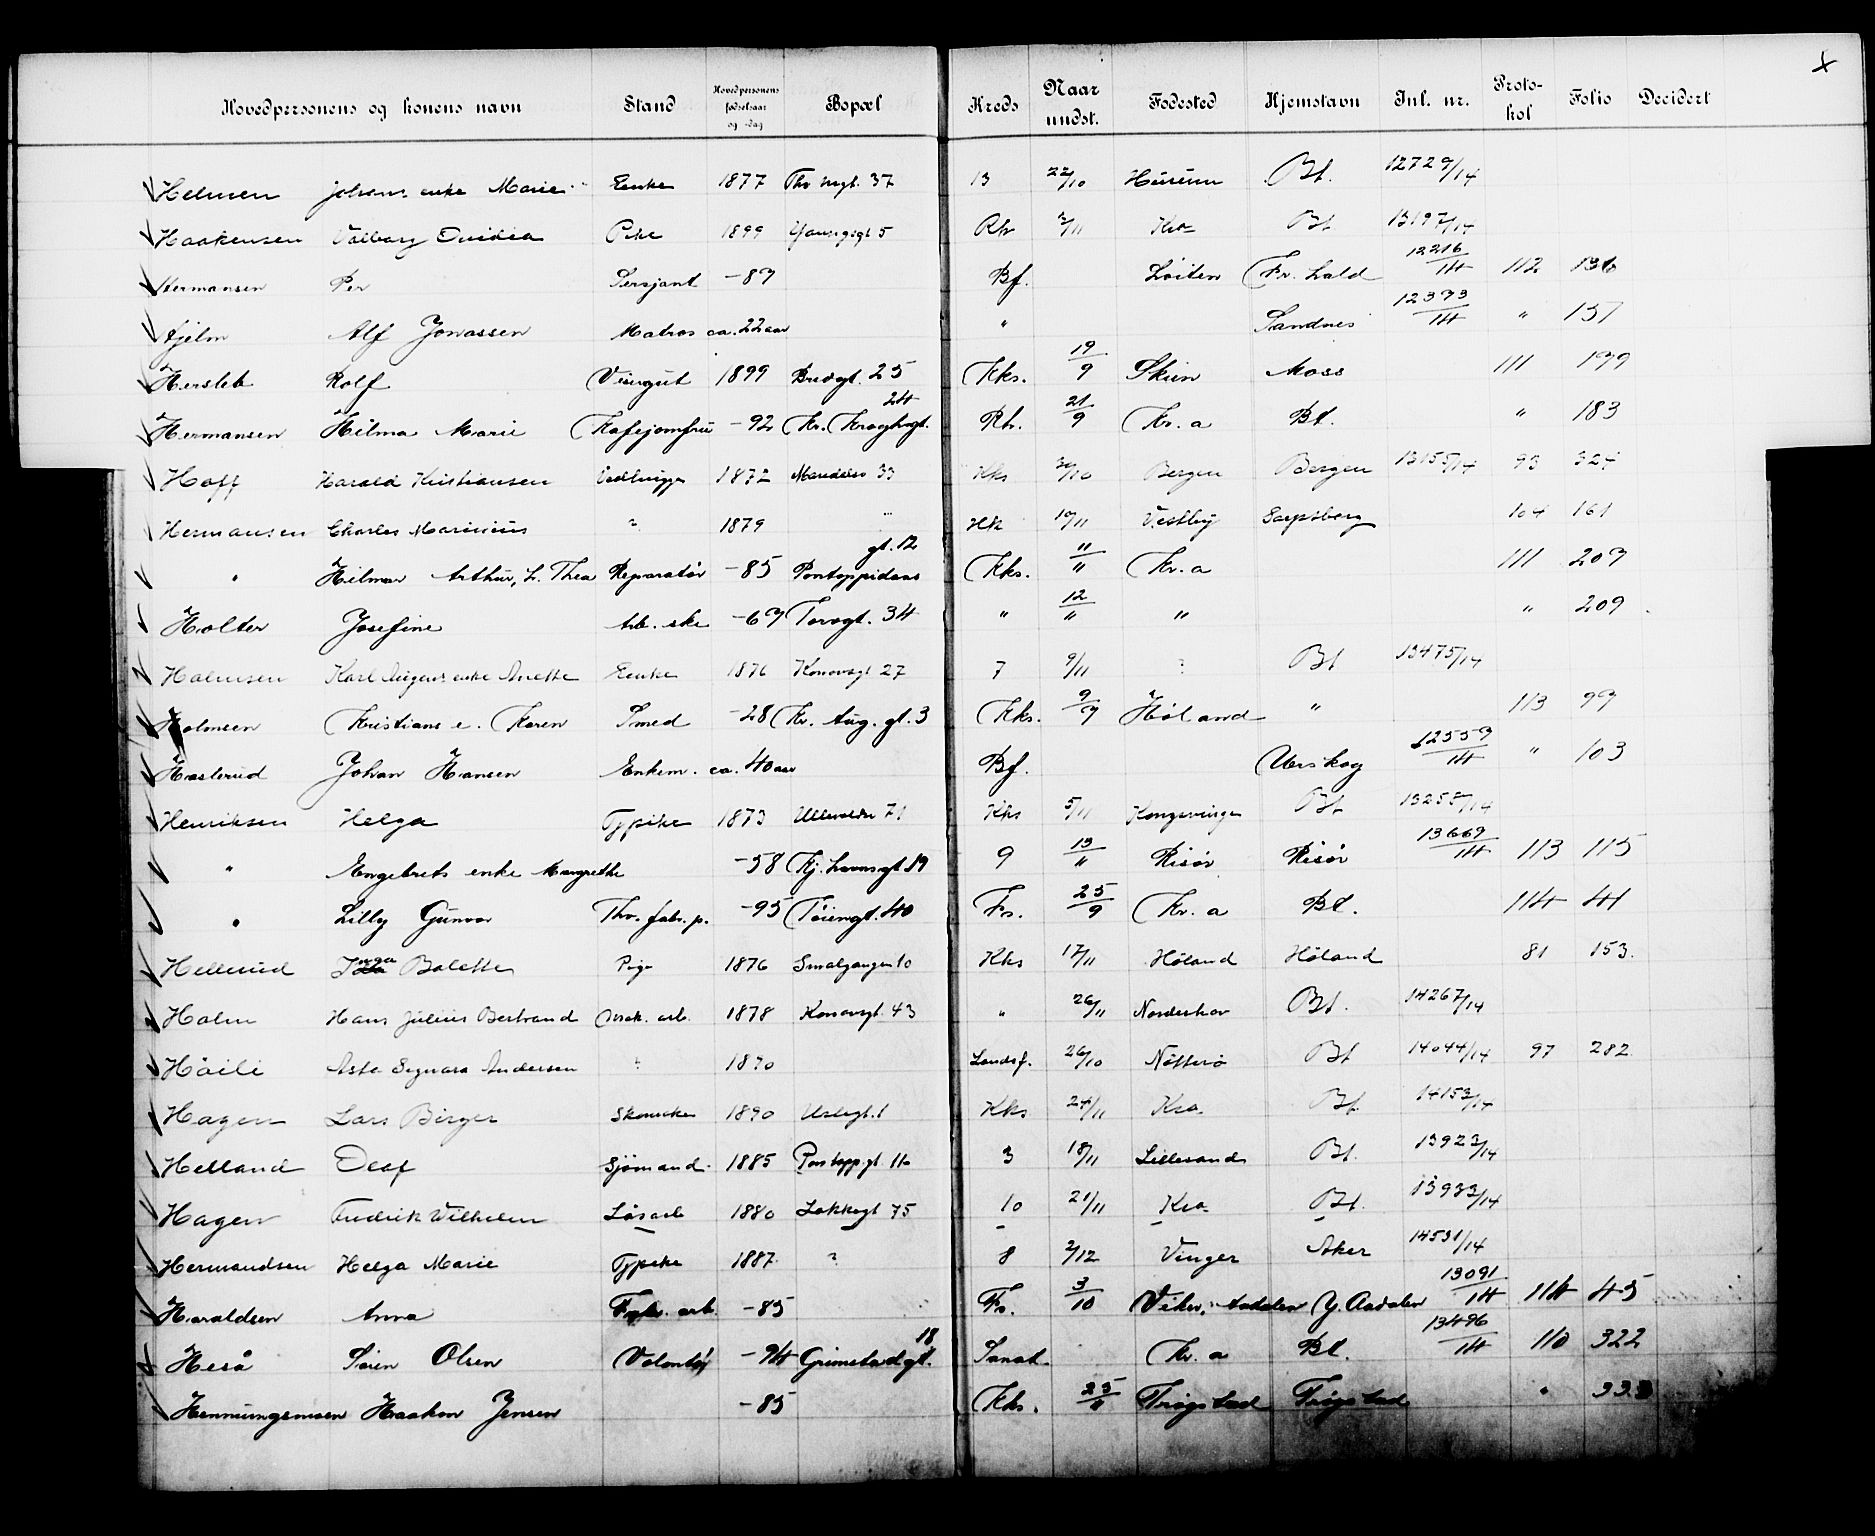 x
Hovedpersonens og konens navn Stand Hovedpersonens fødselsaar og -dag Bopæl Kreds Naar undst. Fødested Hjemstavn Inl. nr. Protokol Folio Decidert
Helmen Johans enke Marie Enke 1877 37 13 22/10 Hurum Bt. 12729/14
Haakensen Valborg Ovidia Pike 1899 5 Rh 2/11 Kra Bt 13197/14
Hermansen Per Sersjant -87 Bf. Løiten Fr. hald 12216/14 112 136
Hjelm Alf Jonassen Matros ca. 22 aar " Sandnes 12373/14 " 137
Hersleb Rolf Visergut 1899 Bredgt. 25 Kks. 19/9 Skien Moss 111 179
Hermansen Hilma Marie Kafejomfru -92 Kr. Kroghsgt. 24 Rh. 21/9 Kr.a Bt. " 183
Hoff Harald Kristiansen Vedhugger 1872 Maridalsv 33 Kks 30/10 Bergen Bergen 13155/14 93 324
Hermansen Charles Mauritius ? 1879 " Kk 10/11 Vestby Sarpsborg 104 161
" Hilmar Arthur, h. Thea Reparatør -85 Pontoppidans gt. 12 Kks. 11/11 Kr.a 111 207
Holter Josefine Arb. ske -67 Torvgt. 34 " 12/11 " " 209
Halmsen Karl Augens enke Anette Enke 1876 Konowsgt 27 7 9/11 ? Bt 13475/14
Holmsen Kristians e. Karen Smed -28 Kr. Aug. gt. 3 Kks. 9/9 Høland " 113 99
Haslerud Johan Hansen Enkem. ca. 40 aar Bf. Urskog 12557/14 " 103
Henriksen Helga Typike 1873 Ullevoldsv 71 Kks 5/11 Kongsvinger Bt 13255/14
" Engebrets enke Margrethe -58 Kj. havnsgt 19 9 13/11 Risør Risør 13669/14 113 115
" Lilly Gunvor Thv. fabr. p. -95 Tøiengt. 40 Fs. 25/9 Kr.a Bt. 114 41
Hellerud Inga Balette Pige 1876 Smalgangen 10 Kks 17/11 Høland Høland 81 153
Halm Hans Julius Bertrand Brak. arb. 1878 Konowsgt. 43 " 26/11 Norderhov Bt. 14267/14
Høili Asta Signora Andersen ? 1890 Landsf. 26/10 Nøtterø Bt 14044/14 97 282
Hagen Lars Birger Skomaker 1890 Uslegt. 1 Kks 24/11 Kra. Bt. 14153/14
Helland Olaf Sjømand 1885 Pontoppgt. 11a 3 18/11 Lillesand Bt. 13923/14
Hagen Fredrik Wilhelm Løsarb 1880 Løkkegt 75 10 21/11 Kra Bt. 13933/14
Hermandsen Helga Marie Typike 1887 ? 8 2/12 Vinger Aker 14531/14
Haraldsen Anna Fabr. arb. -85 Fs. 3/10 Viker, Aadalen Y. Aadalen 13091/14 114 45
Heså Søren Olsen Volontør -94 Grimstadgt. 18 Sanat. Kr.a Bt. 13496/14 110 322
Henningsmoen Haakon Jensen -85 Kks. 25/11 Trøgstad Trøgstad " 333